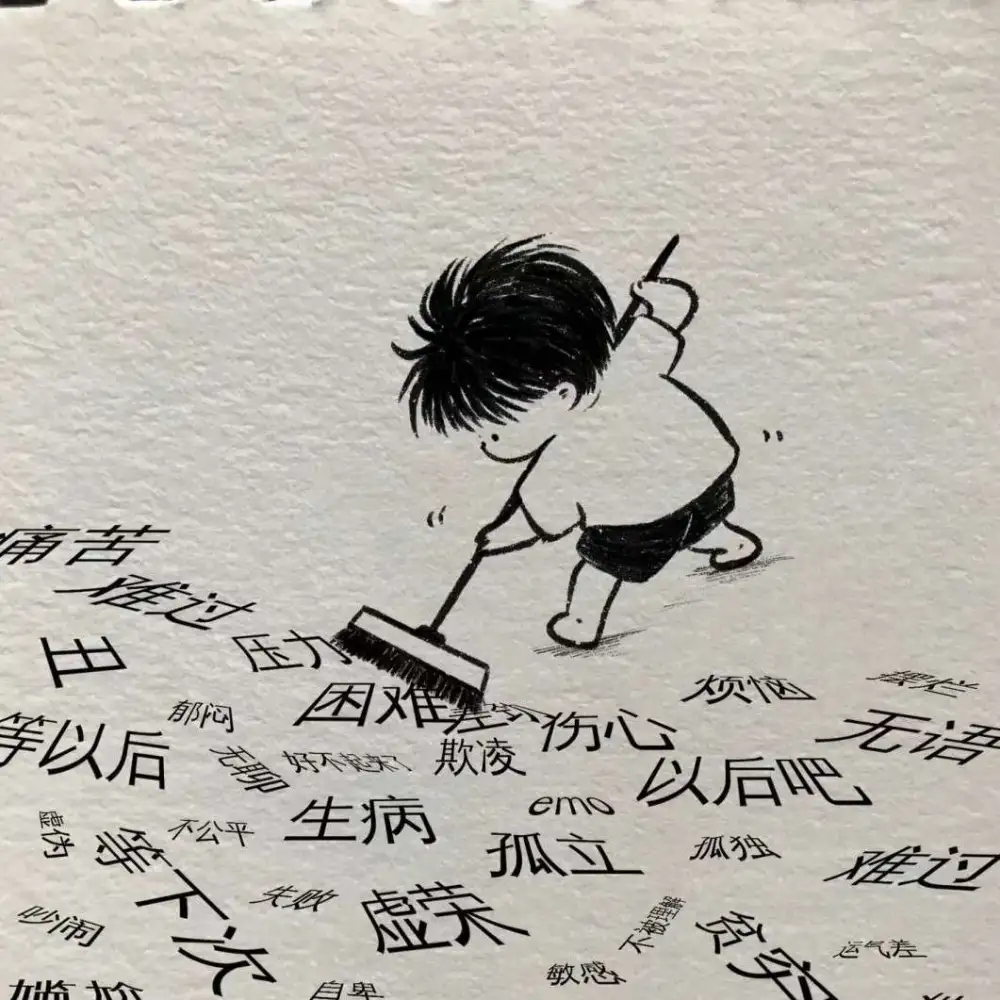 痛苦
难过
丑
压力
困难
烦恼
摆烂
等以后
郁闷
伤心
无语
无聊
好不起来了
欺凌
以后吧
虚伪
不公平
生病
emo
孤立
孤独
难过
等下次
失败
虚荣
吵闹
不被理解
贫穷
运气差
敏感
自卑